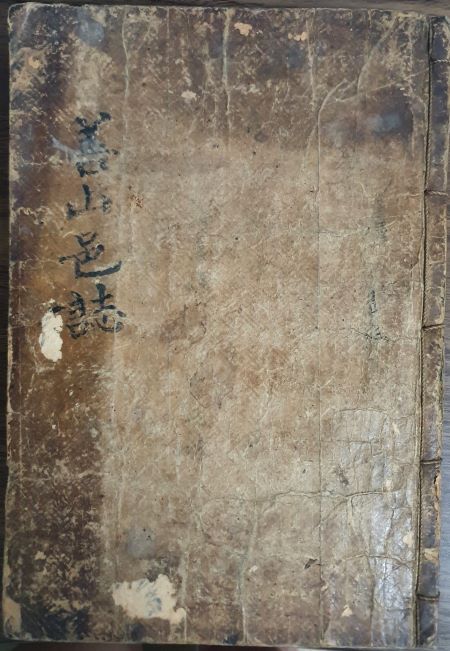 善山邑誌